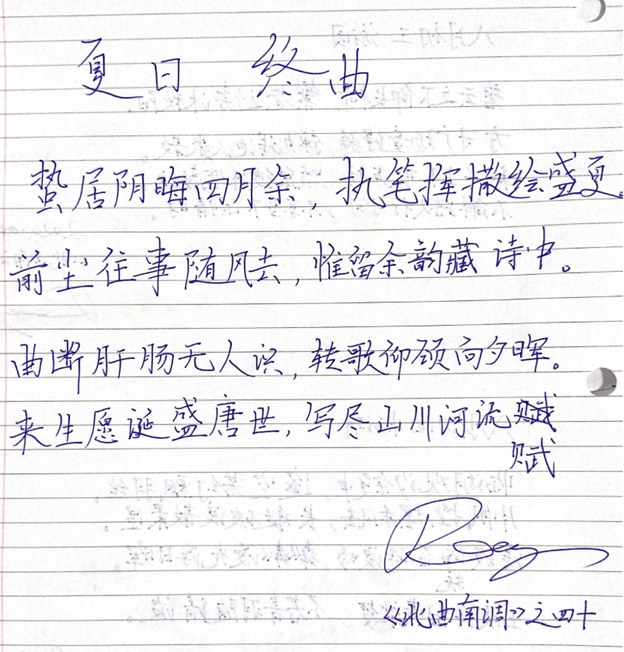 夏日 终曲
蛰居阴晦四月余，执笔挥撒绘盛夏。
前尘往事随风去，惟留余韵藏诗中。
曲断肝肠无人识，转歌仰颀向夕晖。
来生愿诞盛唐世，写尽山川河流赋
赋
Roey
《北曲南调》之四十